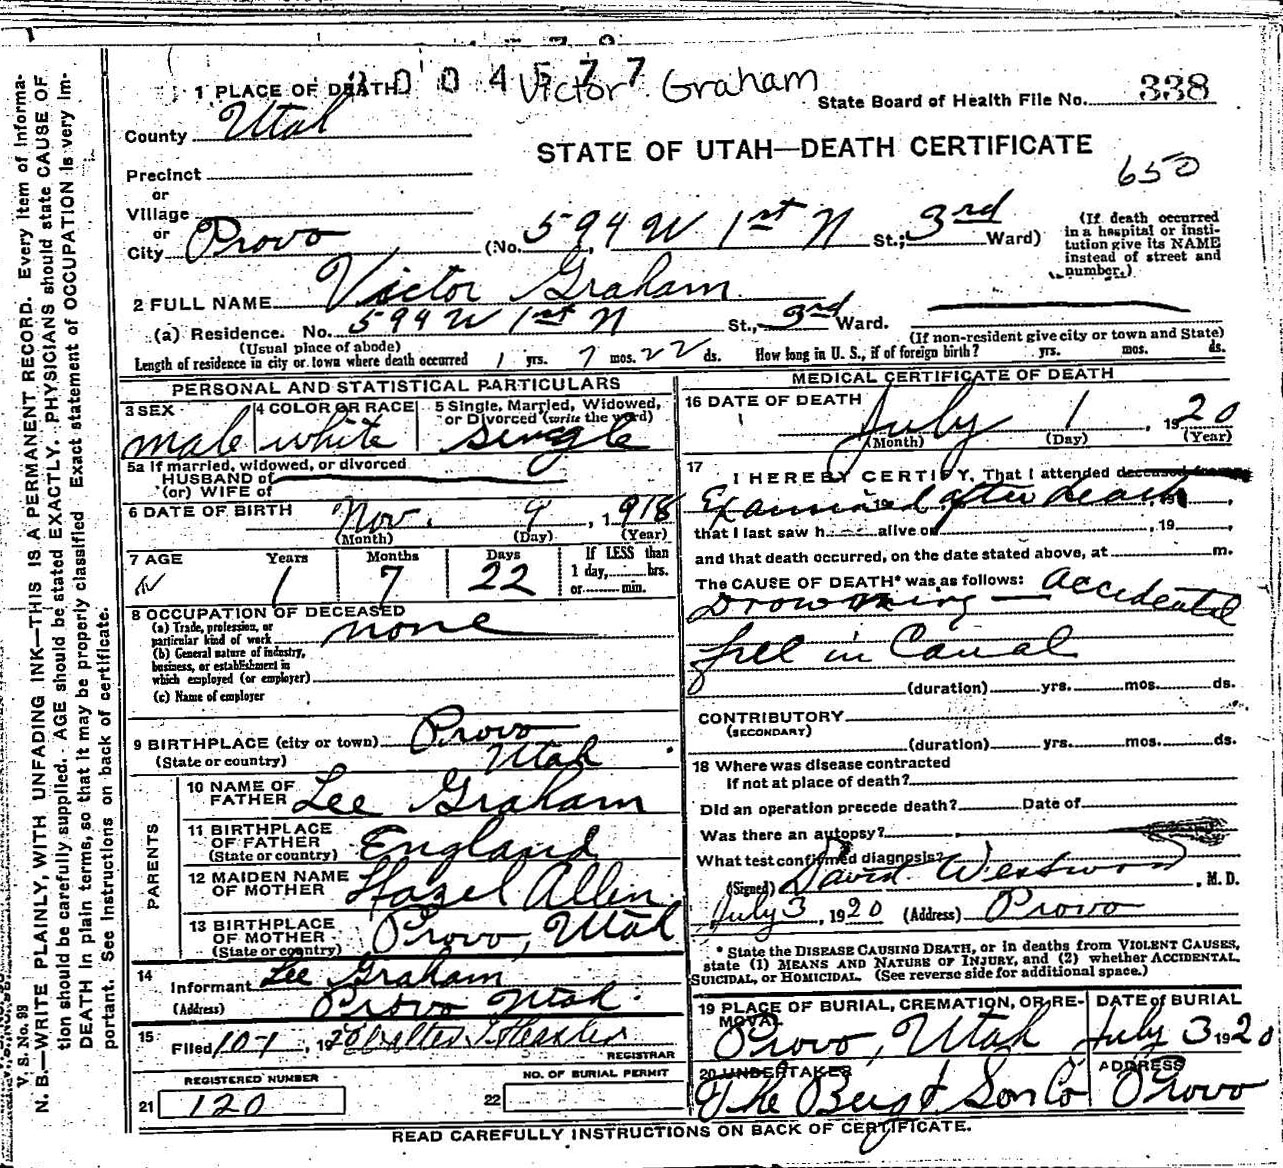 2004577
Victor Graham
1 PLACE OF DEATH
State Board of Health File No. 338
County Utah
STATE OF UTAH—DEATH CERTIFICATE
650
Precinct
or
Village
or
City Provo (No. 594 W 1st N St.; 3rd Ward)
(If death occurred in a hospital or institution give its NAME instead of street and number.)
2 FULL NAME Victor Graham
(a) Residence. No. 594 W 1st N St., 3rd Ward.
(Usual place of abode) (If non-resident give city or town and State)
Length of residence in city or town where death occurred 1 yrs. 7 mos. 22 ds. How long in U. S., if of foreign birth? yrs. mos. ds.
PERSONAL AND STATISTICAL PARTICULARS
3 SEX male
4 COLOR OR RACE white
5 Single, Married, Widowed, or Divorced (write the word) single
5a If married, widowed, or divorced
HUSBAND of
(or) WIFE of
6 DATE OF BIRTH Nov. 9, 1918
(Month) (Day) (Year)
7 AGE Years 1 Months 7 Days 22
If LESS than
1 day, hrs.
or min.
8 OCCUPATION OF DECEASED
(a) Trade, profession, or
particular kind of work none
(b) General nature of industry,
business, or establishment in
which employed (or employer)
(c) Name of employer
9 BIRTHPLACE (city or town) Provo
(State or country) Utah
PARENTS
10 NAME OF FATHER Lee Graham
11 BIRTHPLACE OF FATHER England
(State or country)
12 MAIDEN NAME OF MOTHER Hazel Allen
13 BIRTHPLACE OF MOTHER Provo, Utah
(State or country)
14
Informant Lee Graham
(Address) Provo Utah.
15
Filed 10-1, 1920 Walter T Hasler
REGISTRAR
REGISTERED NUMBER
21 120
NO. OF BURIAL PERMIT
22
MEDICAL CERTIFICATE OF DEATH
16 DATE OF DEATH July 1, 1920
(Month) (Day) (Year)
17
I HEREBY CERTIFY, That I attended deceased from
Examined after death, 19
that I last saw h alive on , 19
and that death occurred, on the date stated above, at m.
The CAUSE OF DEATH* was as follows: Accidental
Drowning — Accidental
fell in Canal
(duration) yrs. mos. ds.
CONTRIBUTORY
(SECONDARY)
(duration) yrs. mos. ds.
18 Where was disease contracted
If not at place of death?
Did an operation precede death? Date of
Was there an autopsy?
What test confirmed diagnosis?
(Signed) David Westwood, M. D.
July 3, 1920 (Address) Provo
* State the DISEASE CAUSING DEATH, or in deaths from VIOLENT CAUSES,
state (1) MEANS AND NATURE OF INJURY, and (2) whether ACCIDENTAL,
SUICIDAL, or HOMICIDAL. (See reverse side for additional space.)
19 PLACE OF BURIAL, CREMATION, OR RE-
MOVAL
Provo, Utah
DATE of BURIAL
July 3 1920
20 UNDERTAKER
The Berg & Son Co
ADDRESS
Provo
READ CAREFULLY INSTRUCTIONS ON BACK OF CERTIFICATE.
V. S. No. 99
N. B.—WRITE PLAINLY, WITH UNFADING INK—THIS IS A PERMANENT RECORD. Every item of informa-
tion should be carefully supplied. AGE should be stated EXACTLY. PHYSICIANS should state CAUSE OF
DEATH in plain terms, so that it may be properly classified. Exact statement of OCCUPATION is very im-
portant. See instructions on back of certificate.